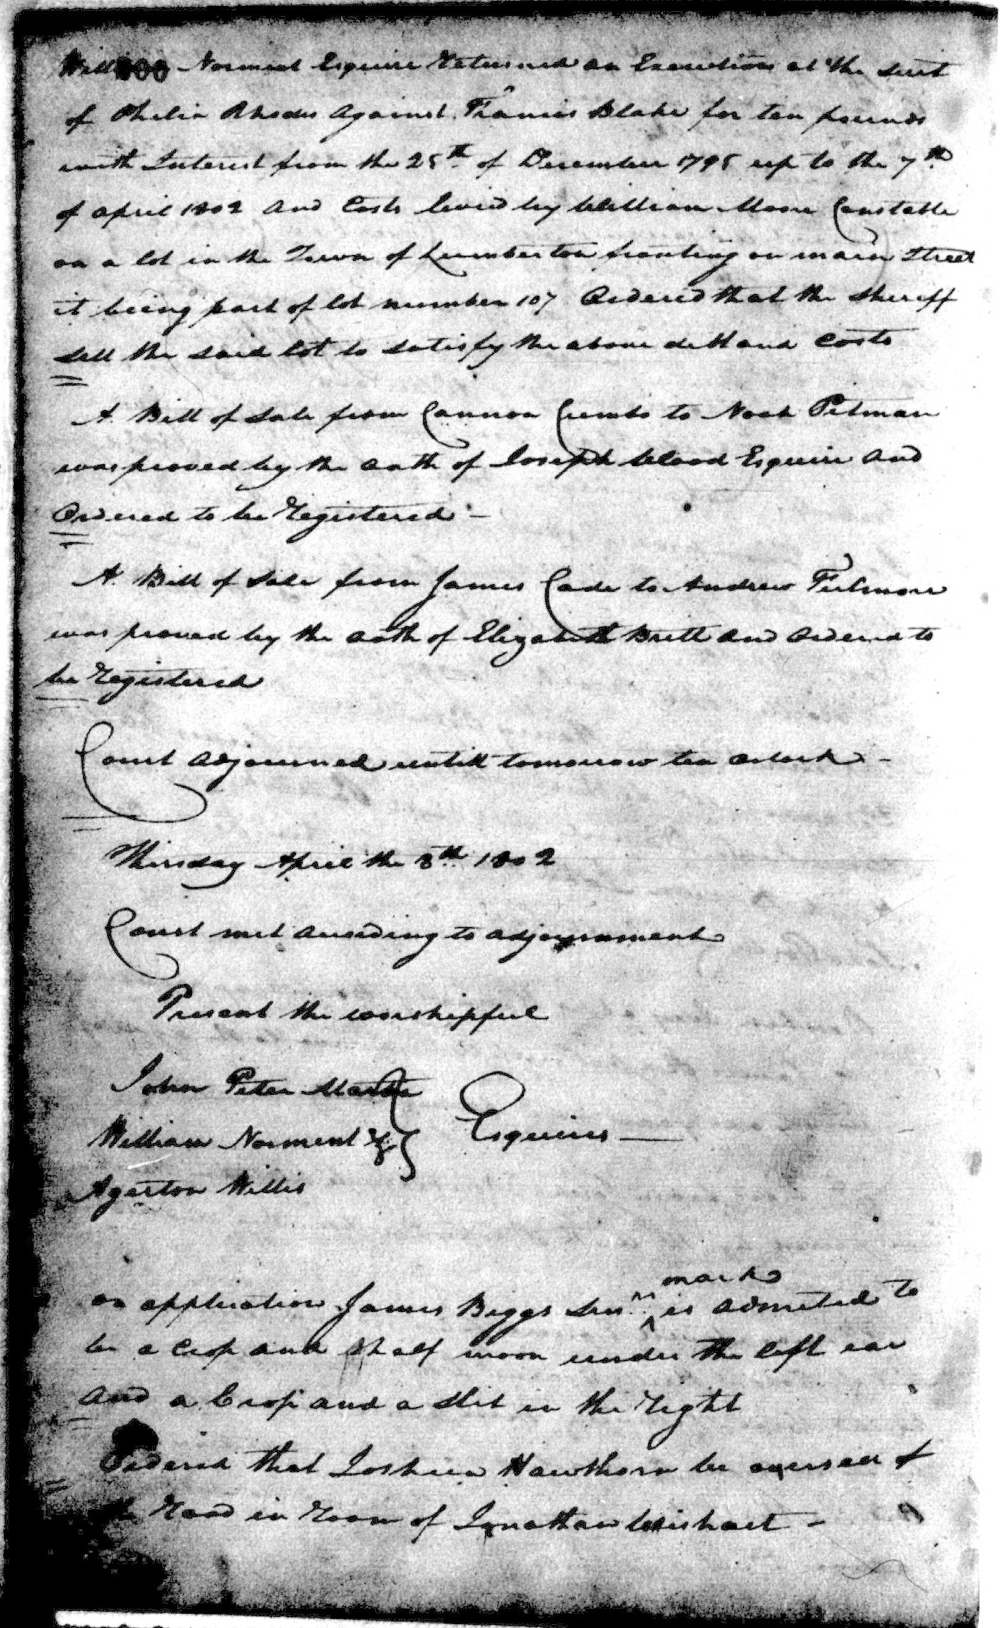 William Norment Esquire Returned an Execution at the suit
of Philin Rhodes against Francis Blake for ten pounds
with Interest from the 25th of December 1795 up to the 7th
of april 1802 and Costs levied by William Moore Constable
on a lot in the Town of Lumberton fronting on main Street
it being part of lot number 107 Ordered that the Sheriff
sell the said lot to satisfy the above debt and Costs
A Bill of Sale from Cannon Cumbo to Noah Pitman
was proved by the oath of Joseph Wood Esquire and
Ordered to be Registered —
A Bill of Sale from James Cade to Andrew
was proved by the oath of Elizabeth Britt and ordered to
be Registered
Court adjourned untill tomorrow ten oclock —
Thirsday April the 8th 1802
Court met according to adjournment
Present the worshipful
John Peter
William Norment &
Esquires —
Agerton Willis
on application James Biggs Senr mark is admited to
be a Crop and half moon under the left ear
and a Crop and a Slit in the Right
Ordered that Joshua Hawthorn be overseer of
Road in Room of Jonathan Wishart —